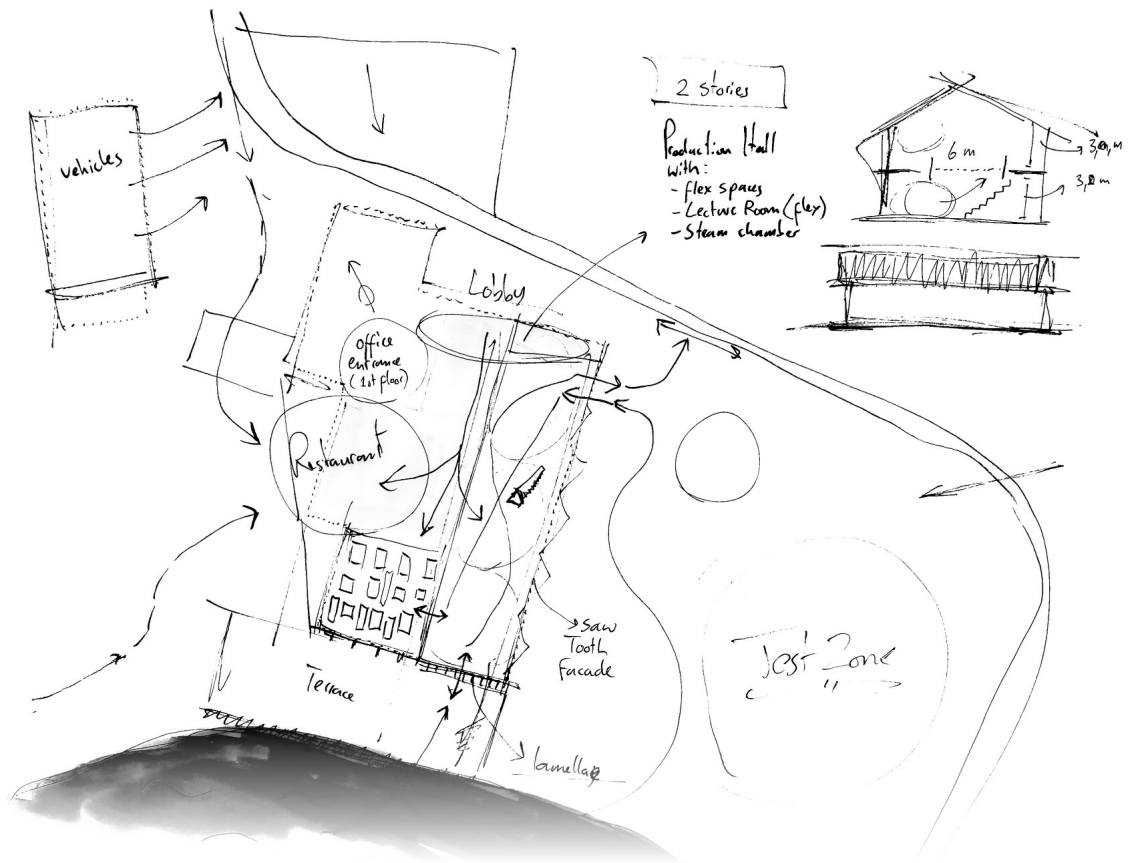 2 stories
Production Hall
with:
- flex spaces
- Lecture Room (flex)
- Steam chamber
6 m
m
m
vehicles
Lobby
office
entrance
(1st floor)
Restaurant
saw
Tooth
facade
Test Zone
Terrace
lamellae